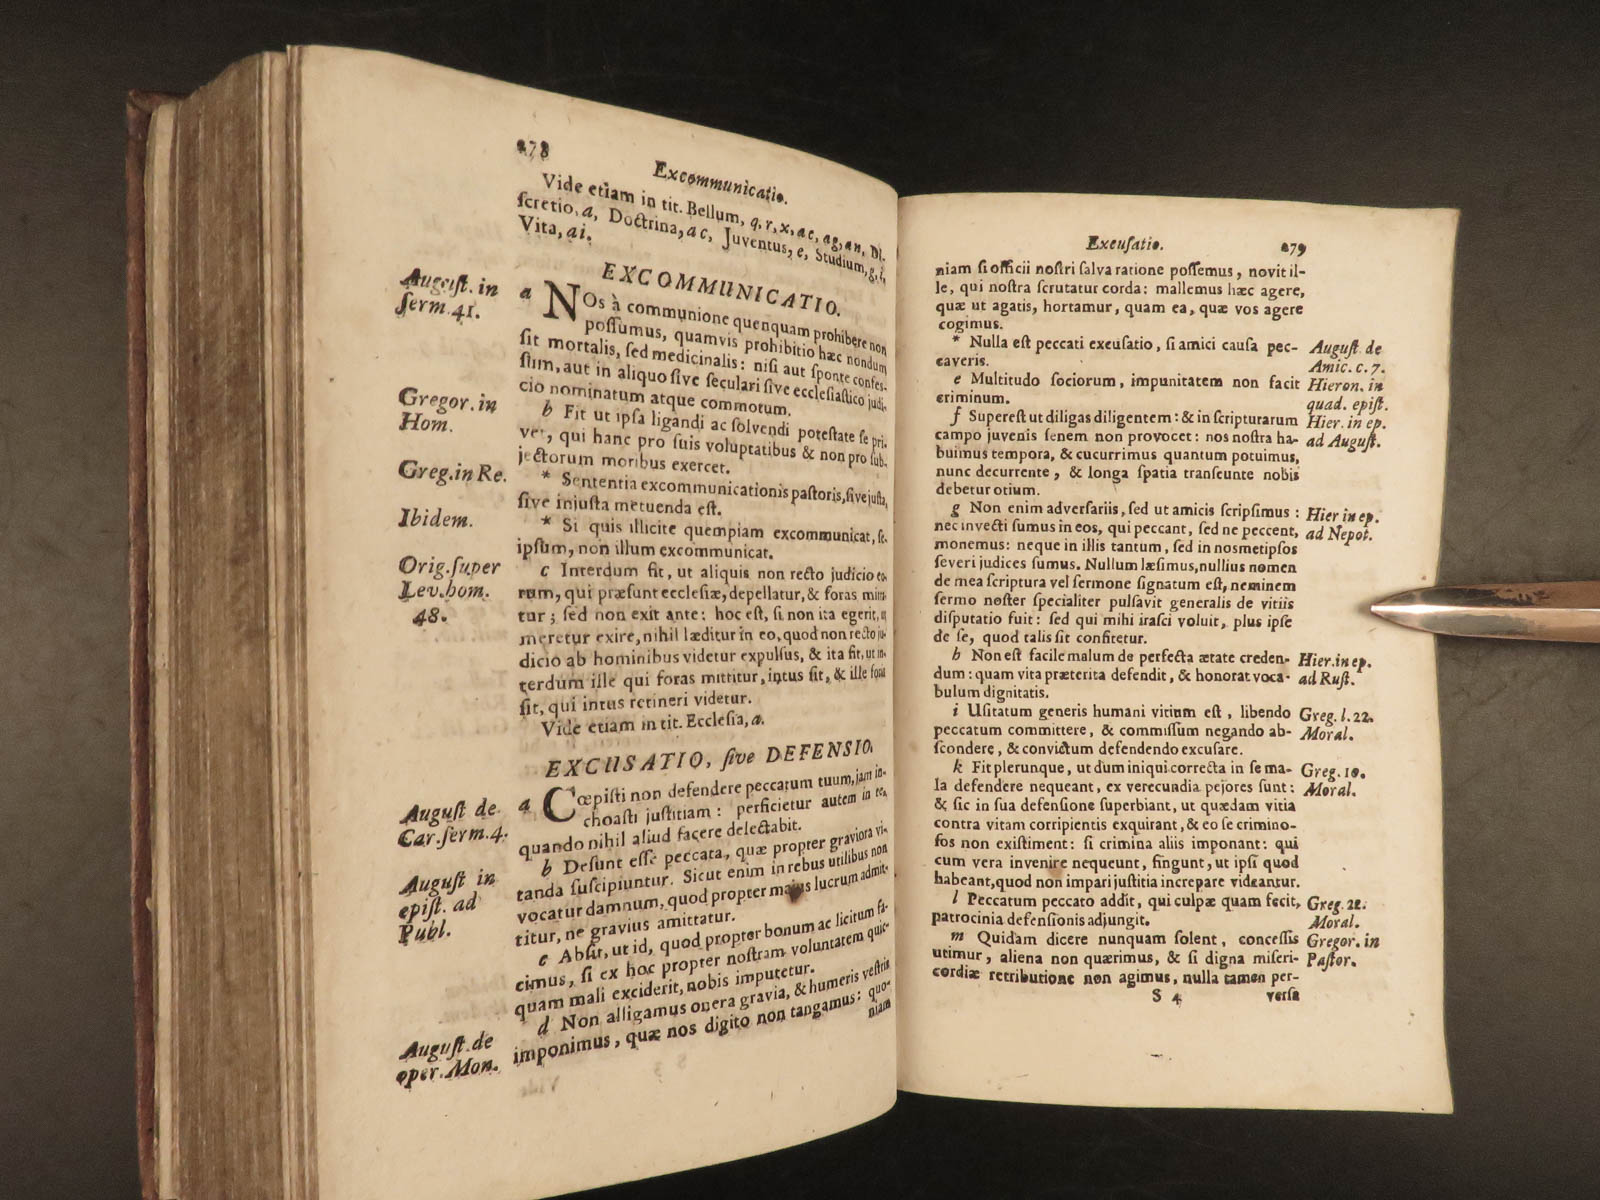 278
Excommunicatio.
Vide etiam in tit. Bellum, q, r, x, ac, ag, an, Di-
ſcretio, a, Doctrina, ac, Juventus, e, Studium, g, i,
Vita, ai.
EXCOMMUNICATIO.
Auguſt. in
ſerm. 41.
a NOs à communione quenquam prohibere non
poſſumus, quamvis prohibitio hæc nondum
ſit mortalis, ſed medicinalis: niſi aut ſponte confeſ-
ſum, aut in aliquo ſive ſeculari ſive eccleſiaſtico judi-
cio nominatum atque commotum.
Gregor. in
Hom.
b Fit ut ipſa ligandi ac ſolvendi poteſtate ſe pri-
vet, qui hanc pro ſuis voluptatibus & non pro ſub-
jectorum moribus exercet.
Greg. in Re.
* Sententia excommunicationis paſtoris, ſive juſta,
ſive injuſta metuenda eſt.
Ibidem.
* Si quis illicite quempiam excommunicat, ſe-
ipſum, non illum excommunicat.
Orig. ſuper
Lev. hom.
48.
c Interdum fit, ut aliquis non recto judicio eo-
rum, qui præſunt eccleſiæ, depellatur, & foras mitta-
tur; ſed non exit ante: hoc eſt, ſi non ita egerit, ut
meretur exire, nihil læditur in eo, quod non recto ju-
dicio ab hominibus videtur expulſus, & ita fit, ut in-
terdum ille qui foras mittitur, intus ſit, & ille foris
ſit, qui intus retineri videtur.
Vide etiam in tit. Eccleſia, a.
EXCUSATIO, ſive DEFENSIO.
Auguſt de
Car. ſerm. 4.
a Cœpiſti non defendere peccatum tuum, jam in-
choaſti juſtitiam: perficietur autem in te,
quando nihil aliud facere delectabit.
Auguſt in
epiſt. ad
Publ.
b Deſunt eſſe peccata, quæ propter graviora vi-
tanda ſuſcipiuntur. Sicut enim in rebus utilibus non
vocatur damnum, quod propter majus lucrum admit-
titur, ne gravius amittatur.
c Abſit, ut id, quod propter bonum ac licitum fa-
cimus, ſi ex hoc propter noſtram voluntatem quic-
quam mali exciderit, nobis imputetur.
Auguſt. de
oper. Mon.
d Non alligamus onera gravia, & humeris veſtris
imponimus, quæ nos digito non tangamus: quo-
niam
Excuſatio.
279
niam ſi officii noſtri ſalva ratione poſſemus, novit il-
le, qui noſtra ſcrutatur corda: mallemus hæc agere,
quæ ut agatis, hortamur, quam ea, quæ vos agere
cogimus.
* Nulla eſt peccati excuſatio, ſi amici cauſa pec-
caveris.
Auguſt. de
Amic. c. 7.
e Multitudo ſociorum, impunitatem non facit
criminum.
Hieron. in
quad. epiſt.
f Supereſt ut diligas diligentem: & in ſcripturarum
campo juvenis ſenem non provocet: nos noſtra ha-
buimus tempora, & cucurrimus quantum potuimus,
nunc decurrente, & longa ſpatia tranſeunte nobis
debetur otium.
Hier. in ep.
ad Auguſt.
g Non enim adverſariis, ſed ut amicis ſcripſimus:
nec invecti ſumus in eos, qui peccant, ſed ne peccent,
monemus: neque in illis tantum, ſed in nosmetipſos
ſeveri judices ſumus. Nullum læſimus, nullius nomen
de mea ſcriptura vel ſermone ſignatum eſt, neminem
ſermo noſter ſpecialiter pulſavit generalis de vitiis
diſputatio fuit: ſed qui mihi iraſci voluit, plus ipſe
de ſe, quod talis ſit confitetur.
Hier in ep.
ad Nepot.
h Non eſt facile malum de perfecta ætate creden-
dum: quam vita præterita defendit, & honorat voca-
bulum dignitatis.
Hier. in ep.
ad Ruſt.
i Uſitatum generis humani vitium eſt, libendo
peccatum committere, & commiſſum negando ab-
ſcondere, & convictum defendendo excuſare.
Greg. l. 22.
Moral.
k Fit plerunque, ut dum iniqui correcta in ſe ma-
la defendere nequeant, ex verecundia pejores ſunt:
& ſic in ſua defenſione ſuperbiant, ut quædam vitia
contra vitam corripientis exquirant, & eo ſe crimino-
ſos non exiſtiment: ſi crimina aliis imponant: qui
cum vera invenire nequeunt, fingunt, ut ipſi quod
habeant, quod non impari juſtitia increpare videantur.
Greg. 10.
Moral.
l Peccatum peccato addit, qui culpæ quam fecit,
patrocinia defenſionis adjungit.
Greg. 22.
Moral.
m Quidam dicere nunquam ſolent, conceſſis
utimur, aliena non quærimus, & ſi digna miſeri-
cordiæ retributione non agimus, nulla tamen per-
Gregor. in
Paſtor.
S 4
verſa